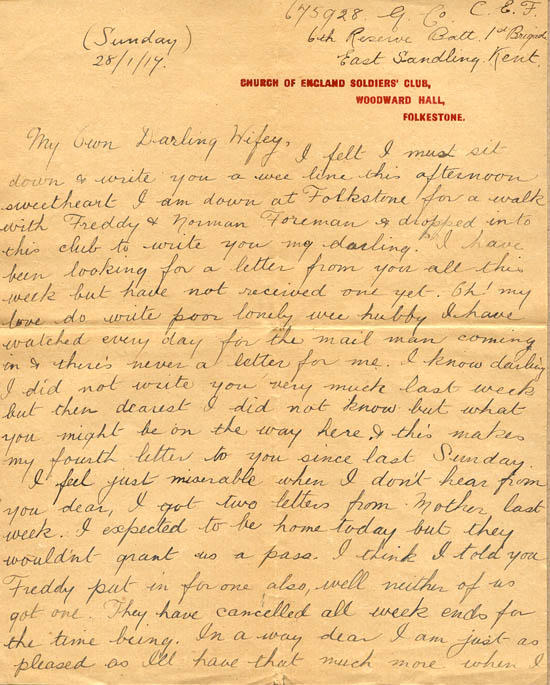 675928. G. Co. C. E. F.
6th Reserve Batt. 1st Brigade
East Sandling. Kent.
(Sunday)
28/1/17.
CHURCH OF ENGLAND SOLDIERS' CLUB,
WOODWARD HALL,
FOLKESTONE.
My Own Darling Wifey,
I felt I must sit
down & write you a wee line this afternoon
sweetheart I am down at Folkstone for a walk
with Freddy & Norman Foreman & dropped into
this club to write you my darling. I have
been looking for a letter from you all this
week but have not received one yet. Oh! my
love do write poor lonely wee hubby I have
watched every day for the mail man coming
in & there's never a letter for me. I know darling
I did not write you very much last week
but then dearest I did not know but what
you might be on the way here & this makes
my fourth letter to you since last Sunday.
I feel just miserable when I don't hear from
you dear, I got two letters from Mother last
week. I expected to be home today but they
wouldn't grant us a pass. I think I told you
Freddy put in for one also, well neither of us
got one. They have cancelled all week ends for
the time being. In a way dear I am just as
pleased as I'll have that much more when I